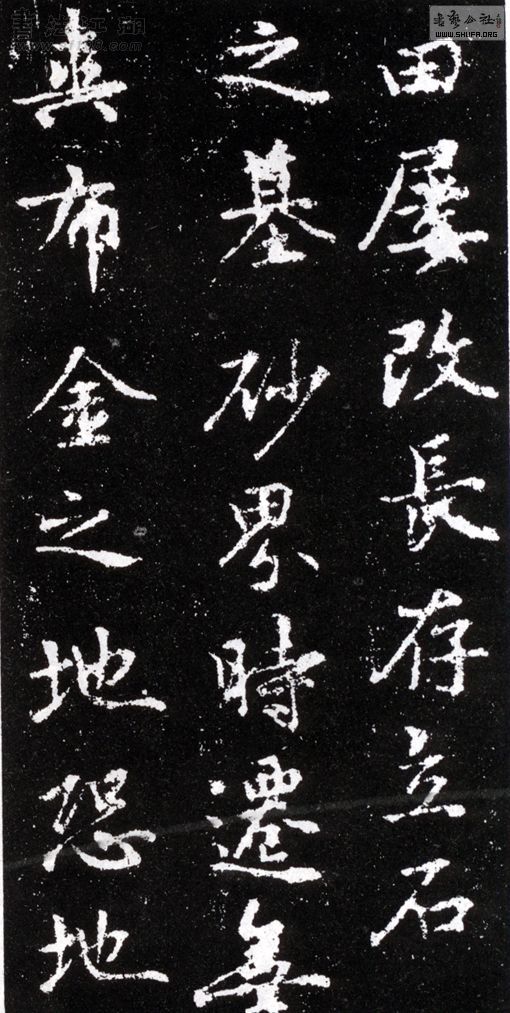 田屢改長存立石
之墓砂界時遷無
爽布金之地恐地
書法江湖
書藝公社
WWW.SHUFA.ORG